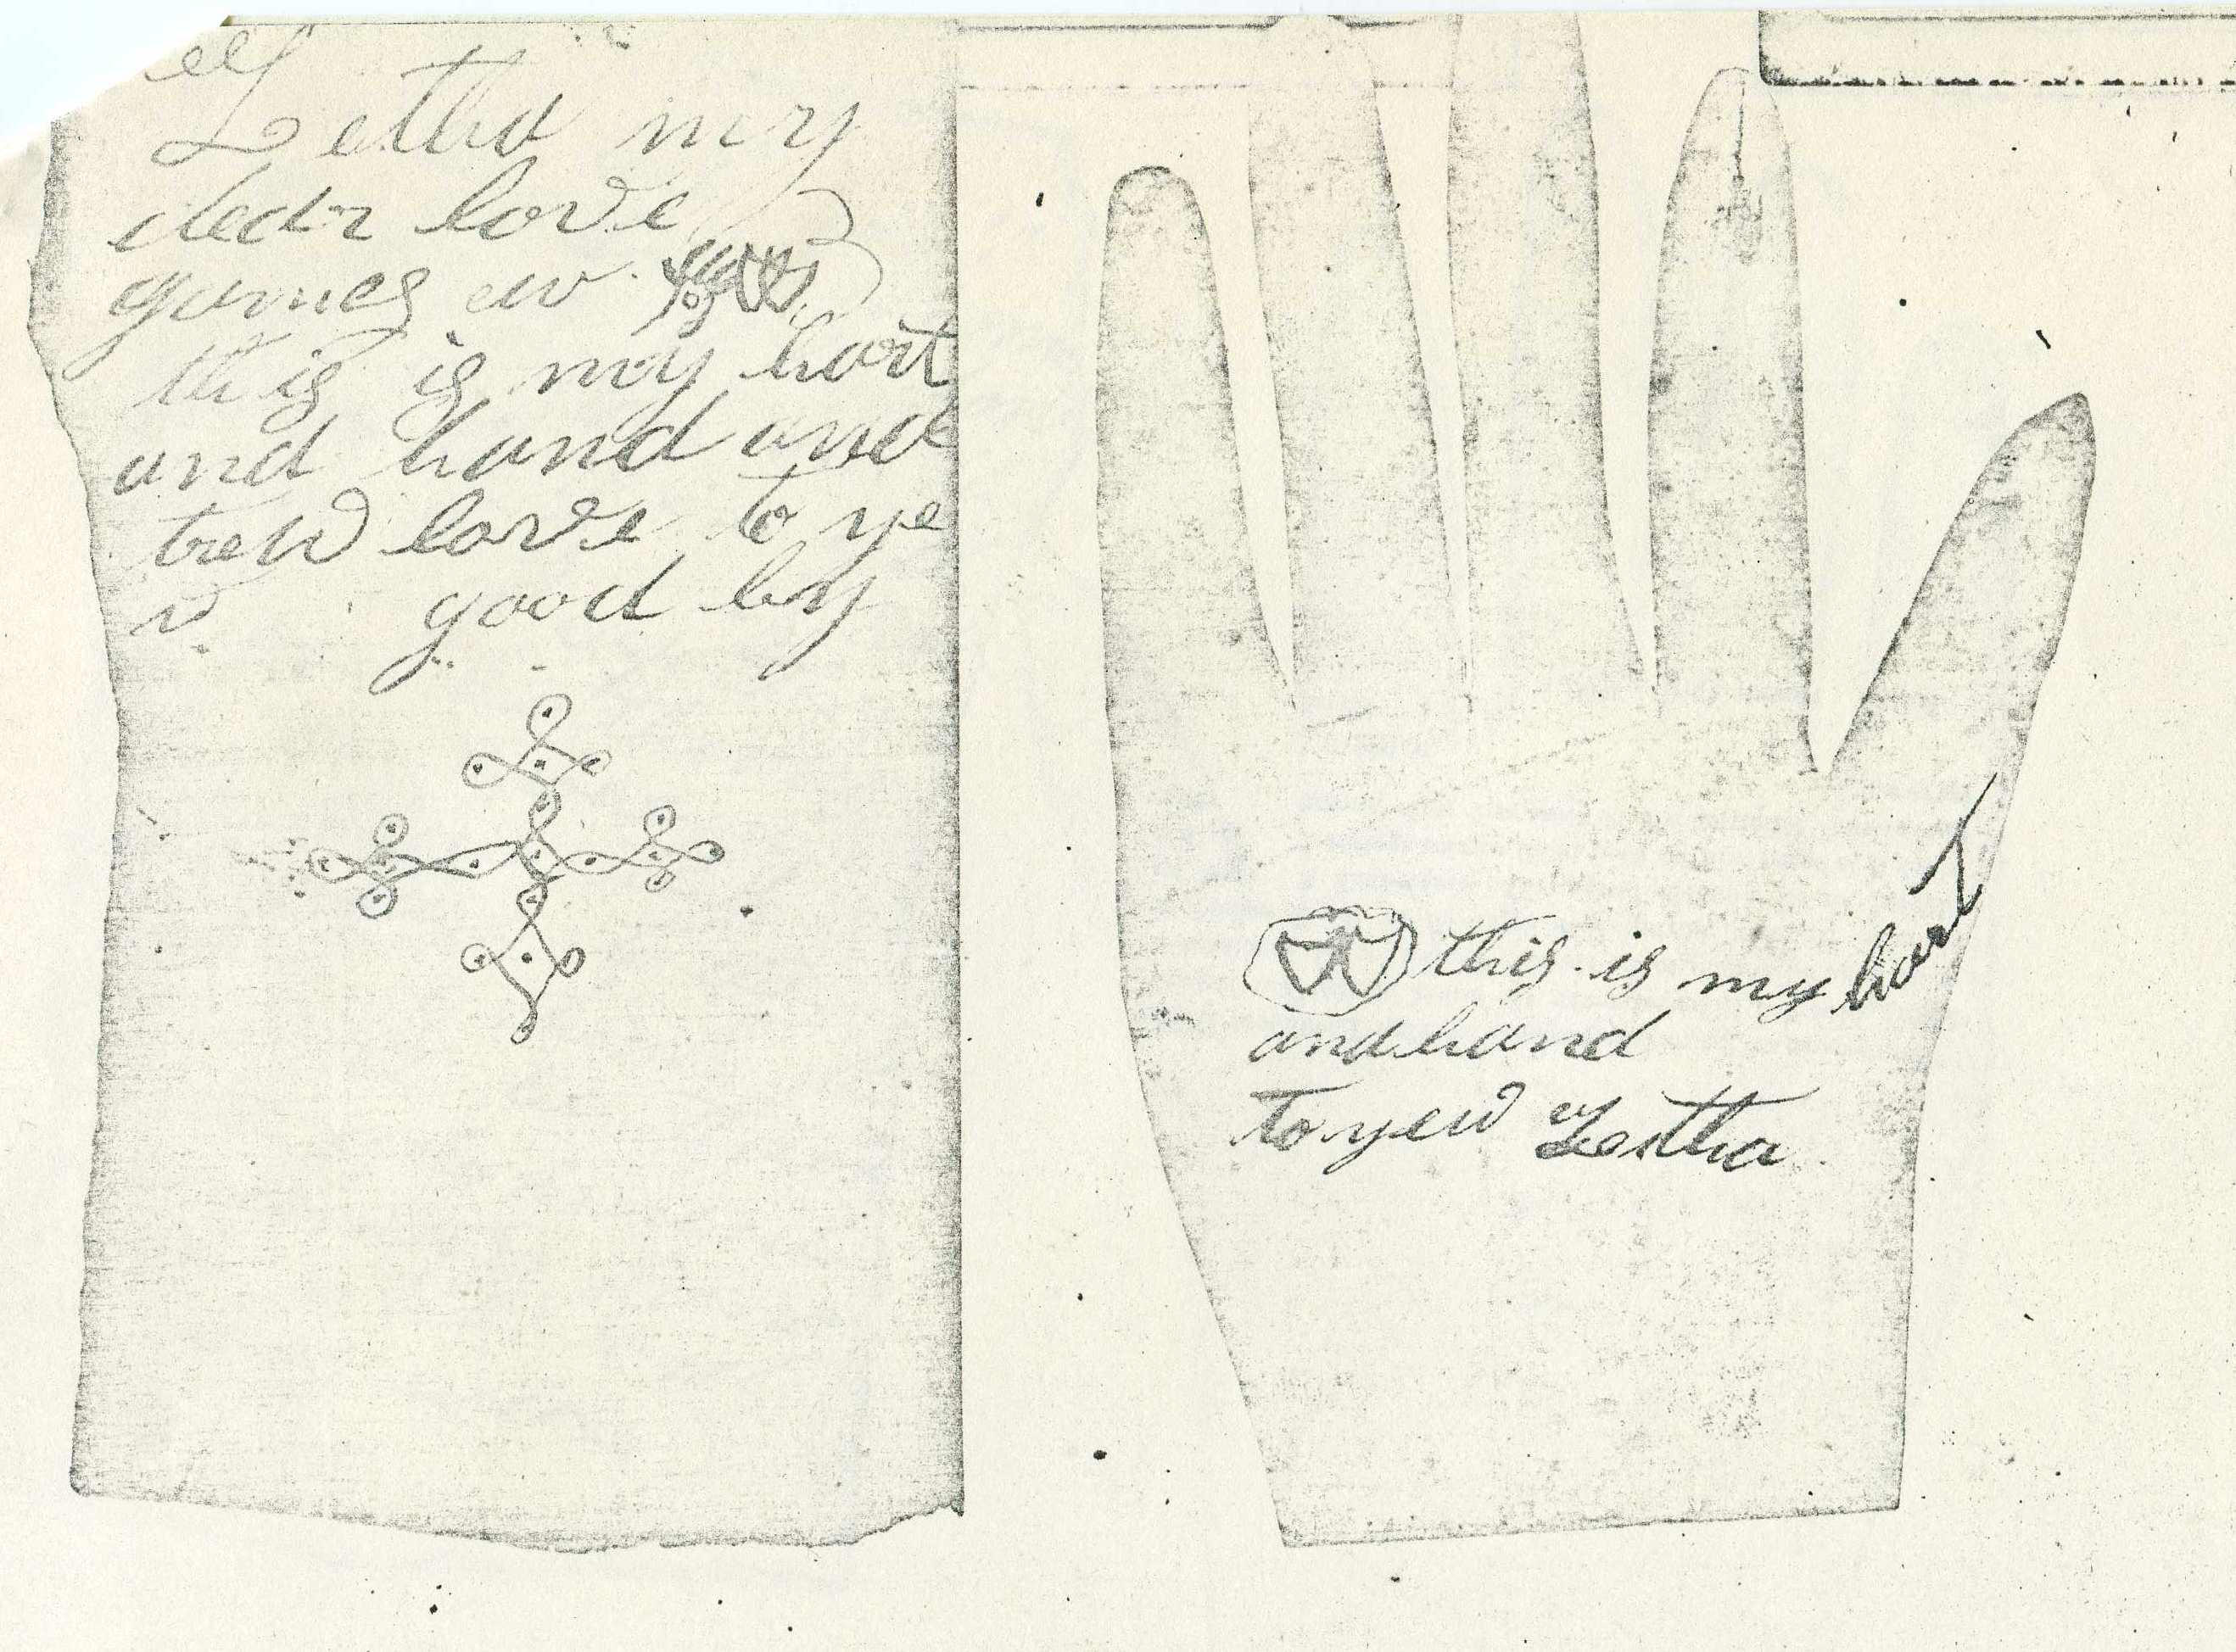 Letha my
dear love
games ew
this is my hart
and hand and
trew love to ye
w good by
this is my hart
and hand
to yew Lestha